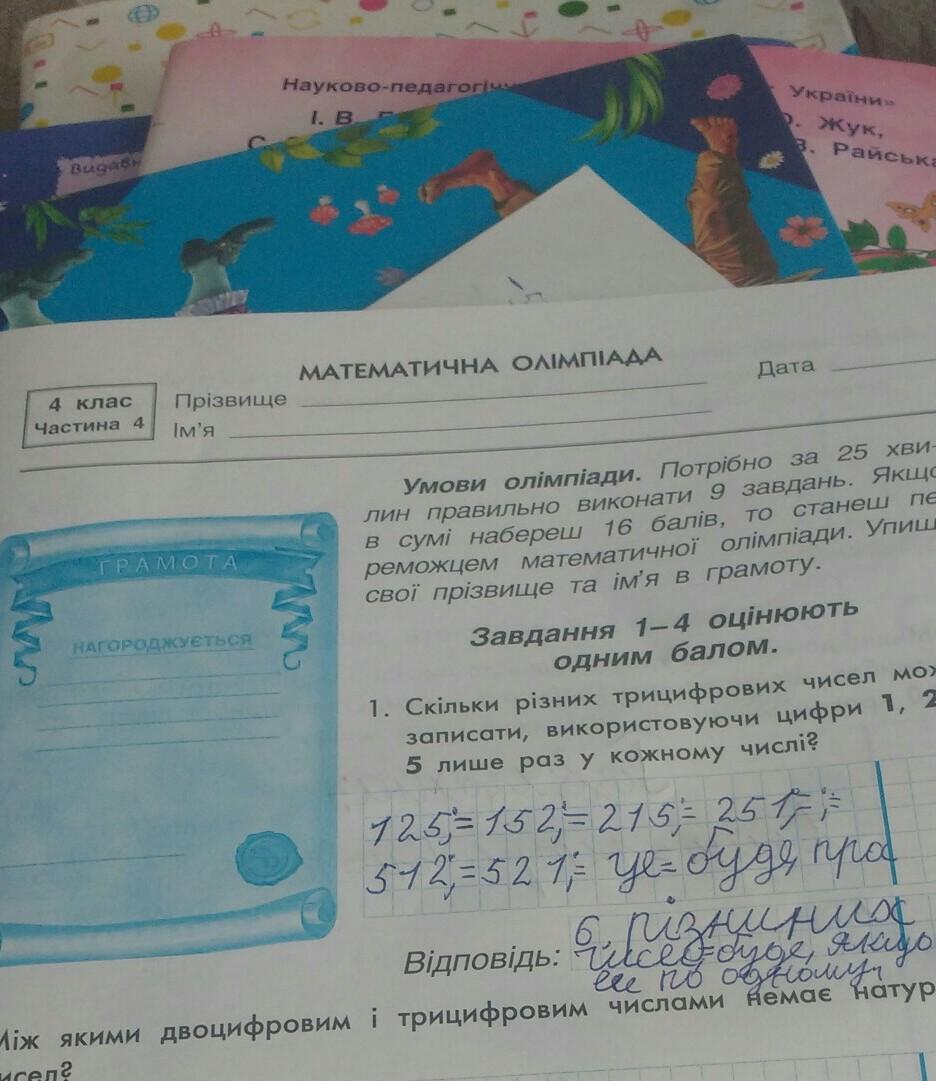 Науково-педагогічн
України»
І. В.
Жук,
В. Райська
Видавн
МАТЕМАТИЧНА ОЛІМПІАДА
4 клас
Частина 4
Прізвище
Дата
Ім'я
Умови олімпіади. Потрібно за 25 хви-
лин правильно виконати 9 завдань. Якщо
в сумі набереш 16 балів, то станеш пе
реможцем математичної олімпіади. Упиш
свої прізвище та ім'я в грамоту.
ГРАМОТА
НАГОРОДЖУЄТЬСЯ
Завдання 1–4 оцінюють
одним балом.
1. Скільки різних трицифрових чисел мож
записати, використовуючи цифри 1, 2
5 лише раз у кожному числі?
125;= 152;= 215;= 251;=
512;= 521;= це= буде, про
Відповідь: 6,
чисел=буде, якщо
по одному
Між якими двоцифровим і трицифровим числами немає натур
исел?